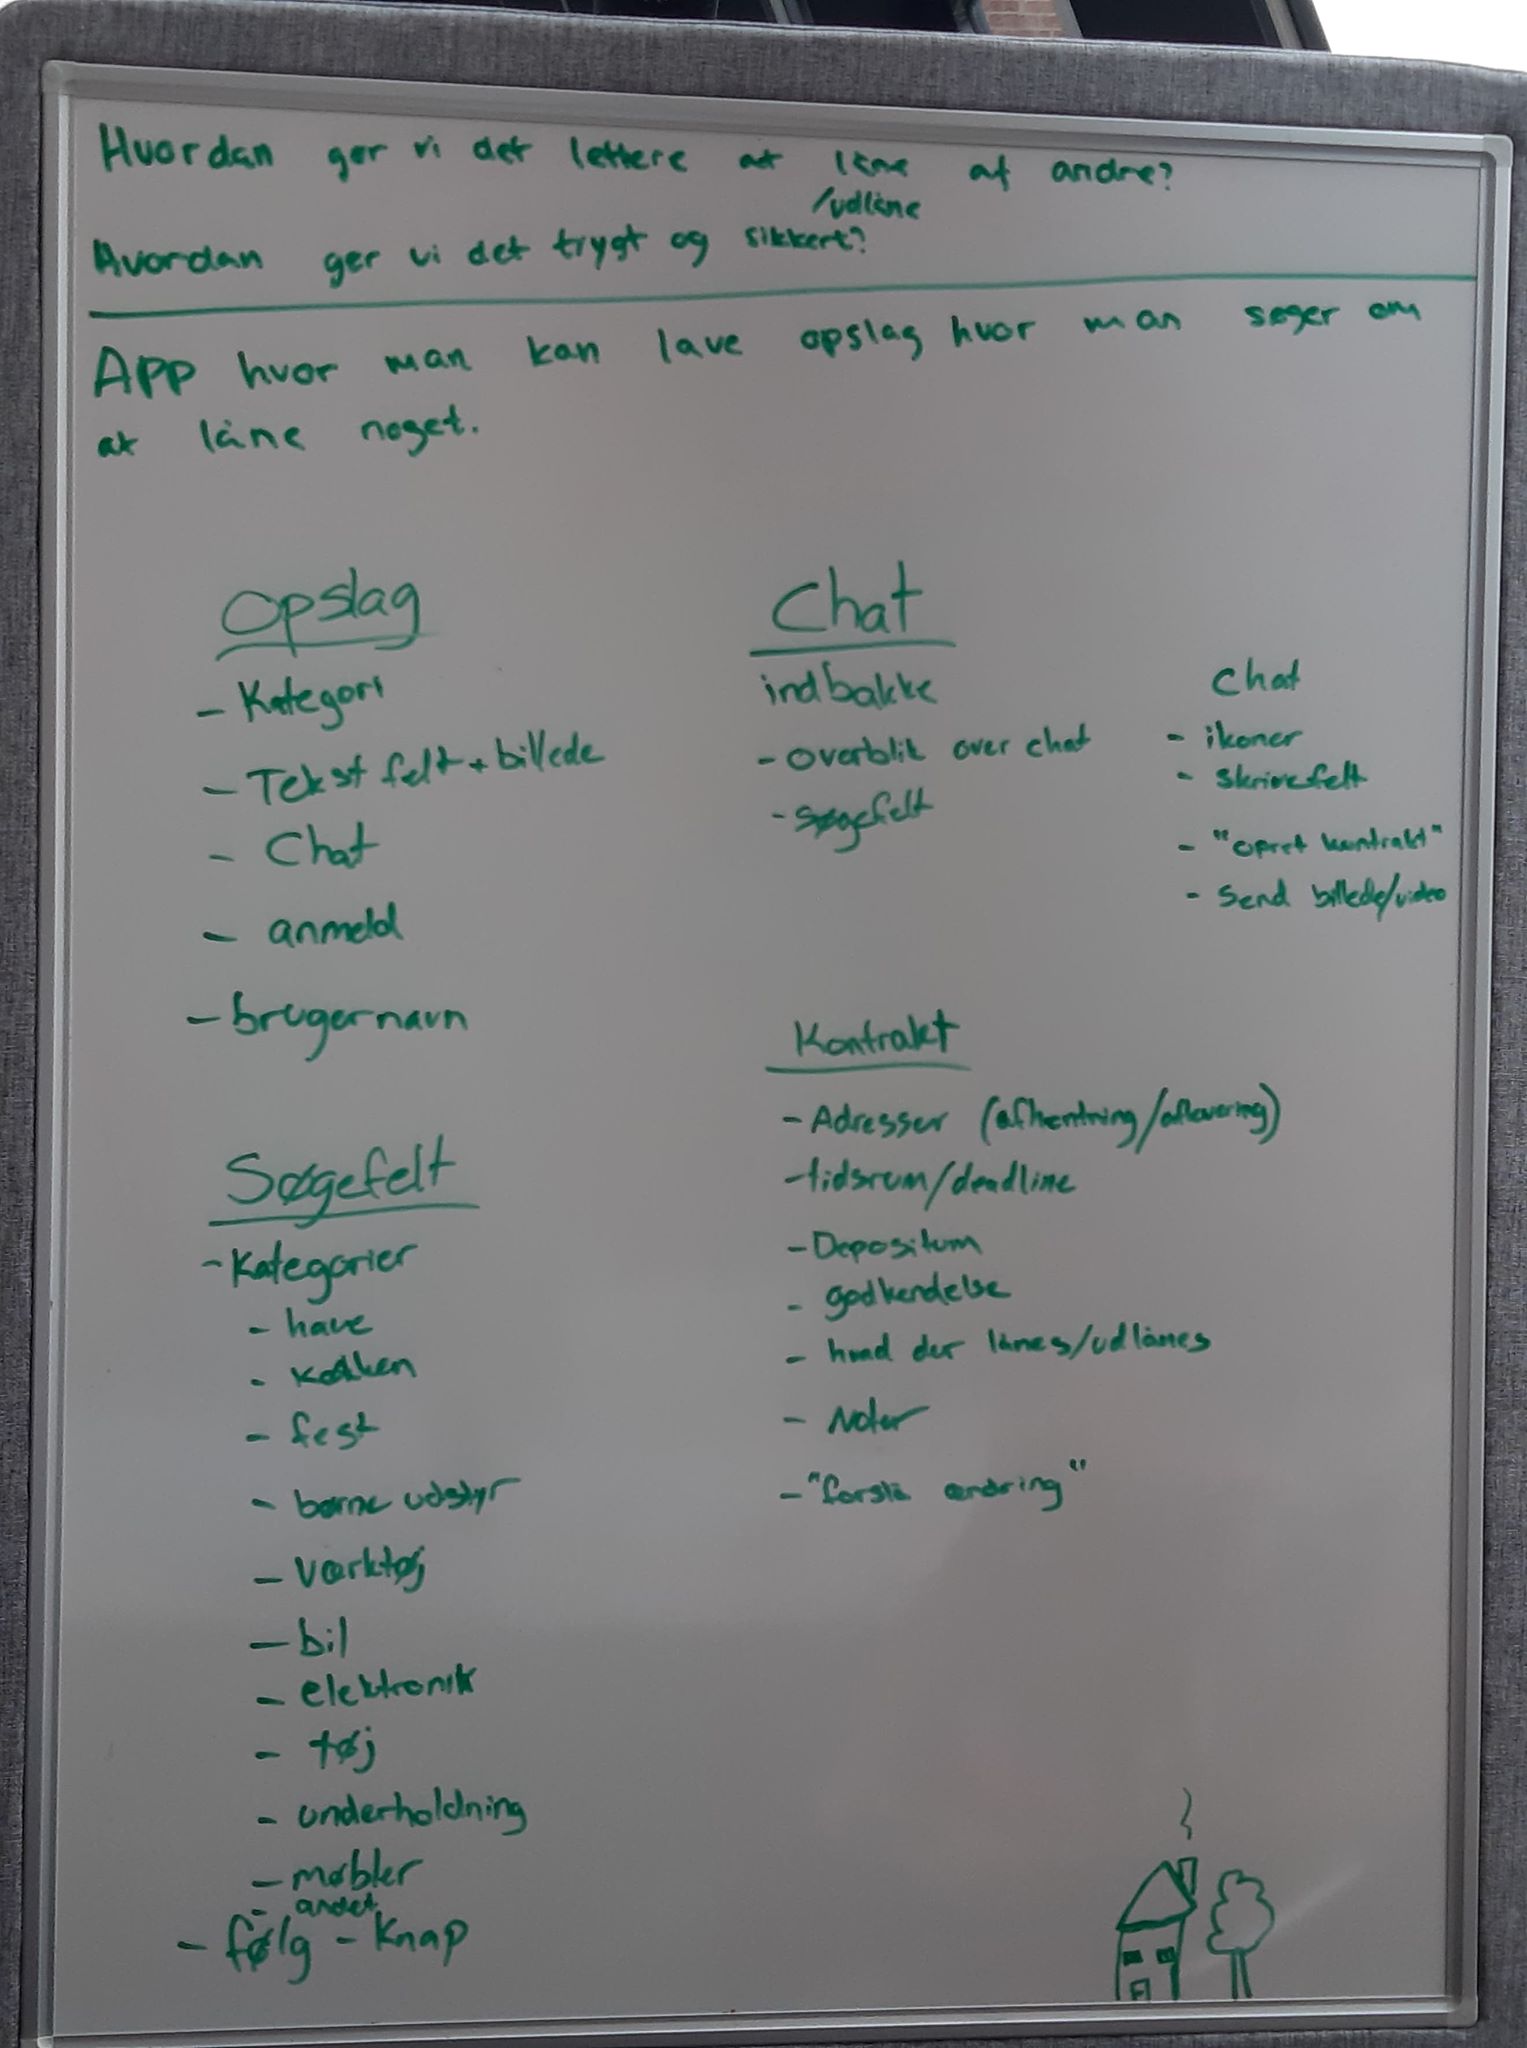 Hvordan gør vi det lettere at låne af andre?
/udlåne
Hvordan gør vi det trygt og sikkert?
App hvor man kan lave opslag hvor man søger om
at låne noget.
Opslag
- Kategori
- Tekst felt + billede
- Chat
- anmeld
- brugernavn
Søgefelt
- Kategorier
- have
- køkken
- fest
- børne udstyr
- Værktøj
- bil
- elektronik
- tøj
- underholdning
- møbler
- andet
- følg - knap
Chat
indbakke
- Overblik over chat
- Søgefelt
Chat
- ikoner
- Skrivefelt
- "opret kontrakt"
- Send billede/video
Kontrakt
- Adresser (afhentning/aflevering)
- tidsrum/deadline
- Depositum
- godkendelse
- hvad der lånes/udlånes
- Noter
- "forslå ændring"